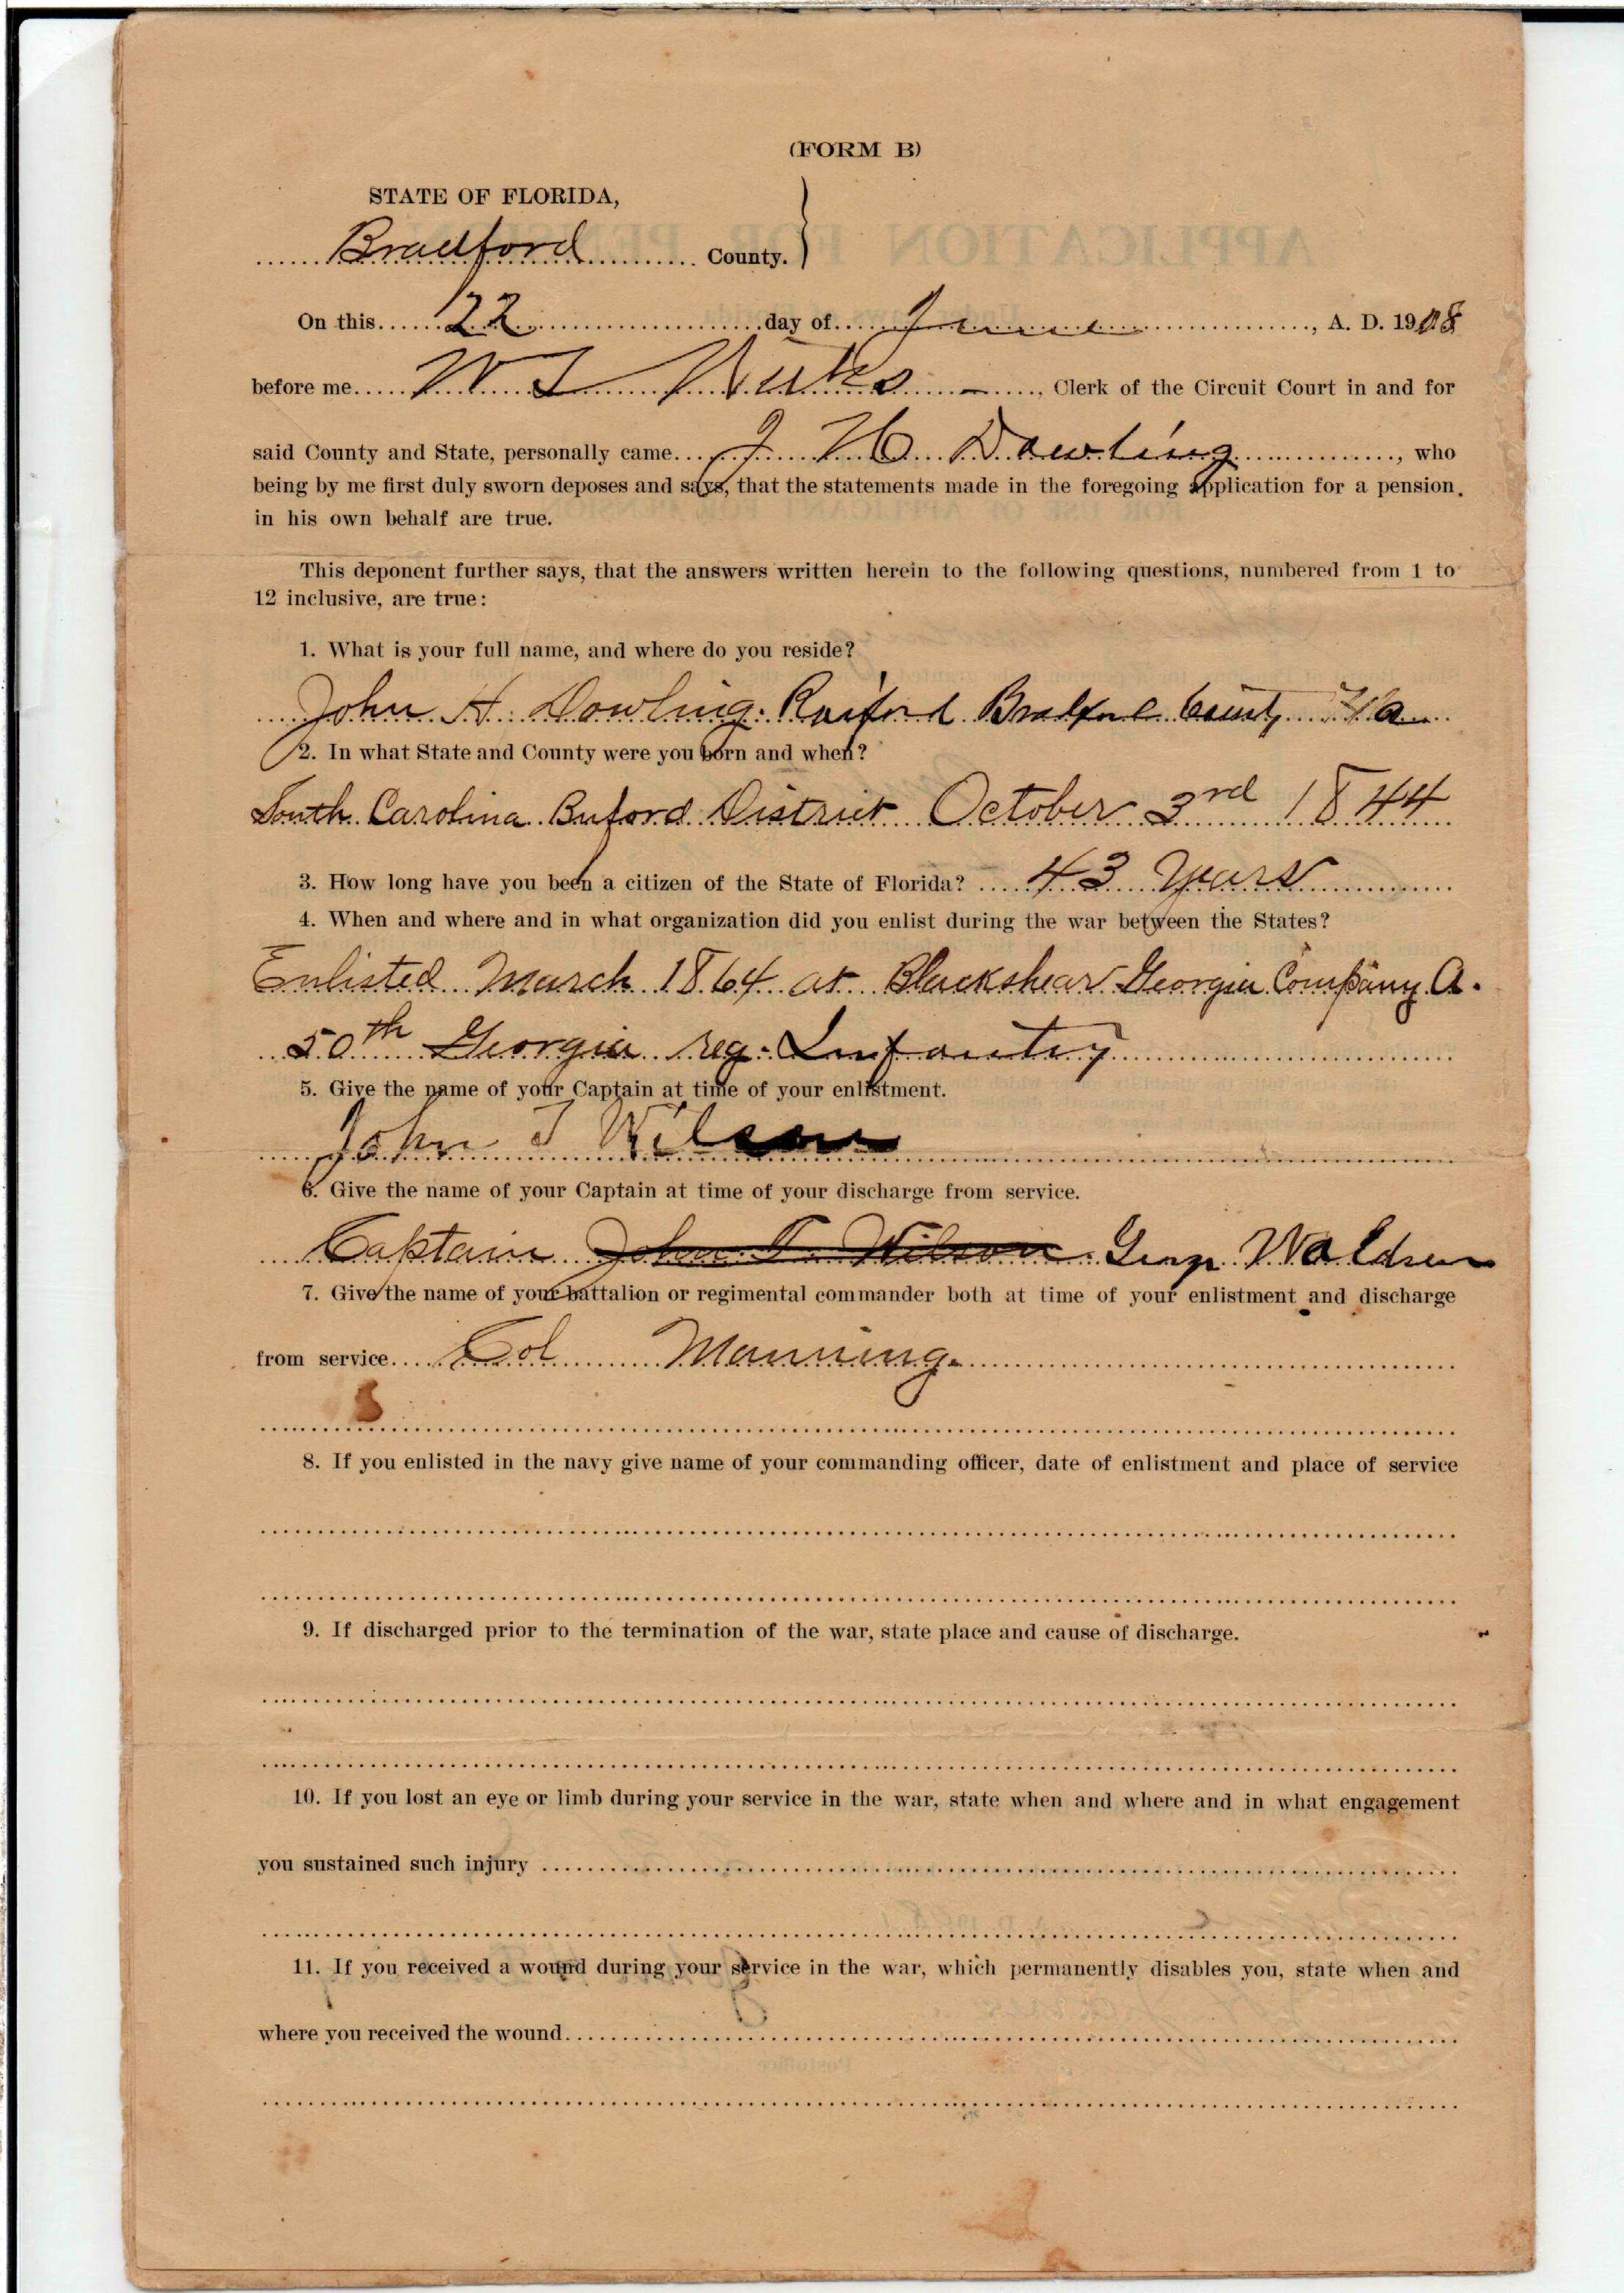 (FORM B)
STATE OF FLORIDA,
Bradford County.
On this 22 day of June, A. D. 1908
before me W T, Clerk of the Circuit Court in and for
said County and State, personally came J H Dowling, who
being by me first duly sworn deposes and says, that the statements made in the foregoing application for a pension
in his own behalf are true.
This deponent further says, that the answers written herein to the following questions, numbered from 1 to
12 inclusive, are true:
1. What is your full name, and where do you reside?
John H. Dowling. Raiford Bradford County Fla
2. In what State and County were you born and when?
South Carolina Buford District October 3rd 1844
3. How long have you been a citizen of the State of Florida? 43 Years
4. When and where and in what organization did you enlist during the war between the States?
Enlisted March 1864 at Blackshear Georgia Company A.
50th Georgia reg. Infantry
5. Give the name of your Captain at time of your enlistment.
John T Wilson
6. Give the name of your Captain at time of your discharge from service.
Captain John T. Wilson. Waldren
7. Give the name of your battalion or regimental commander both at time of your enlistment and discharge
from service. Col Manning.
8. If you enlisted in the navy give name of your commanding officer, date of enlistment and place of service
9. If discharged prior to the termination of the war, state place and cause of discharge.
10. If you lost an eye or limb during your service in the war, state when and where and in what engagement
you sustained such injury
11. If you received a wound during your service in the war, which permanently disables you, state when and
where you received the wound